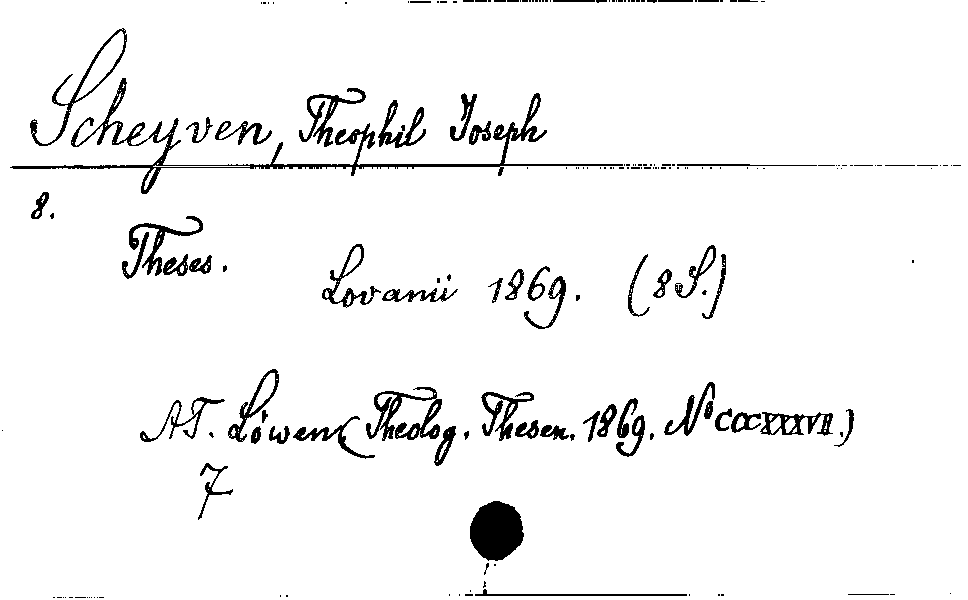 Scheyven, Theophil Joseph
8.
Theses.
Lovanii 1869. (8 S.)
AT. Löwen (Theolog. Thesen. 1869. No CCCXXXVII.)
7